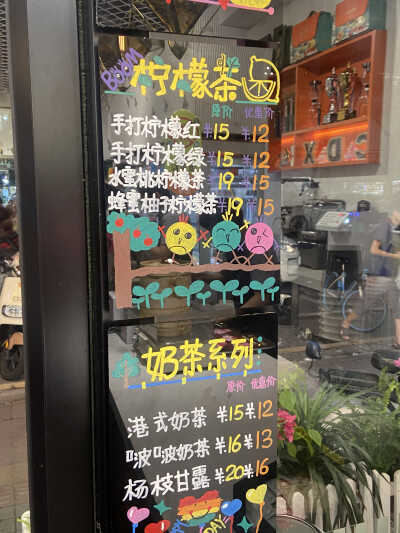 BOOM
柠檬茶
原价 优惠价
手打柠檬红 ¥15 ¥12
手打柠檬绿 ¥15 ¥12
水蜜桃柠檬茶 ¥19 ¥15
蜂蜜柚子柠檬茶 ¥19 ¥15
奶茶系列
原价 优惠价
港式奶茶 ¥15 ¥12
啵啵奶茶 ¥16 ¥13
杨枝甘露 ¥20 ¥16
DAY